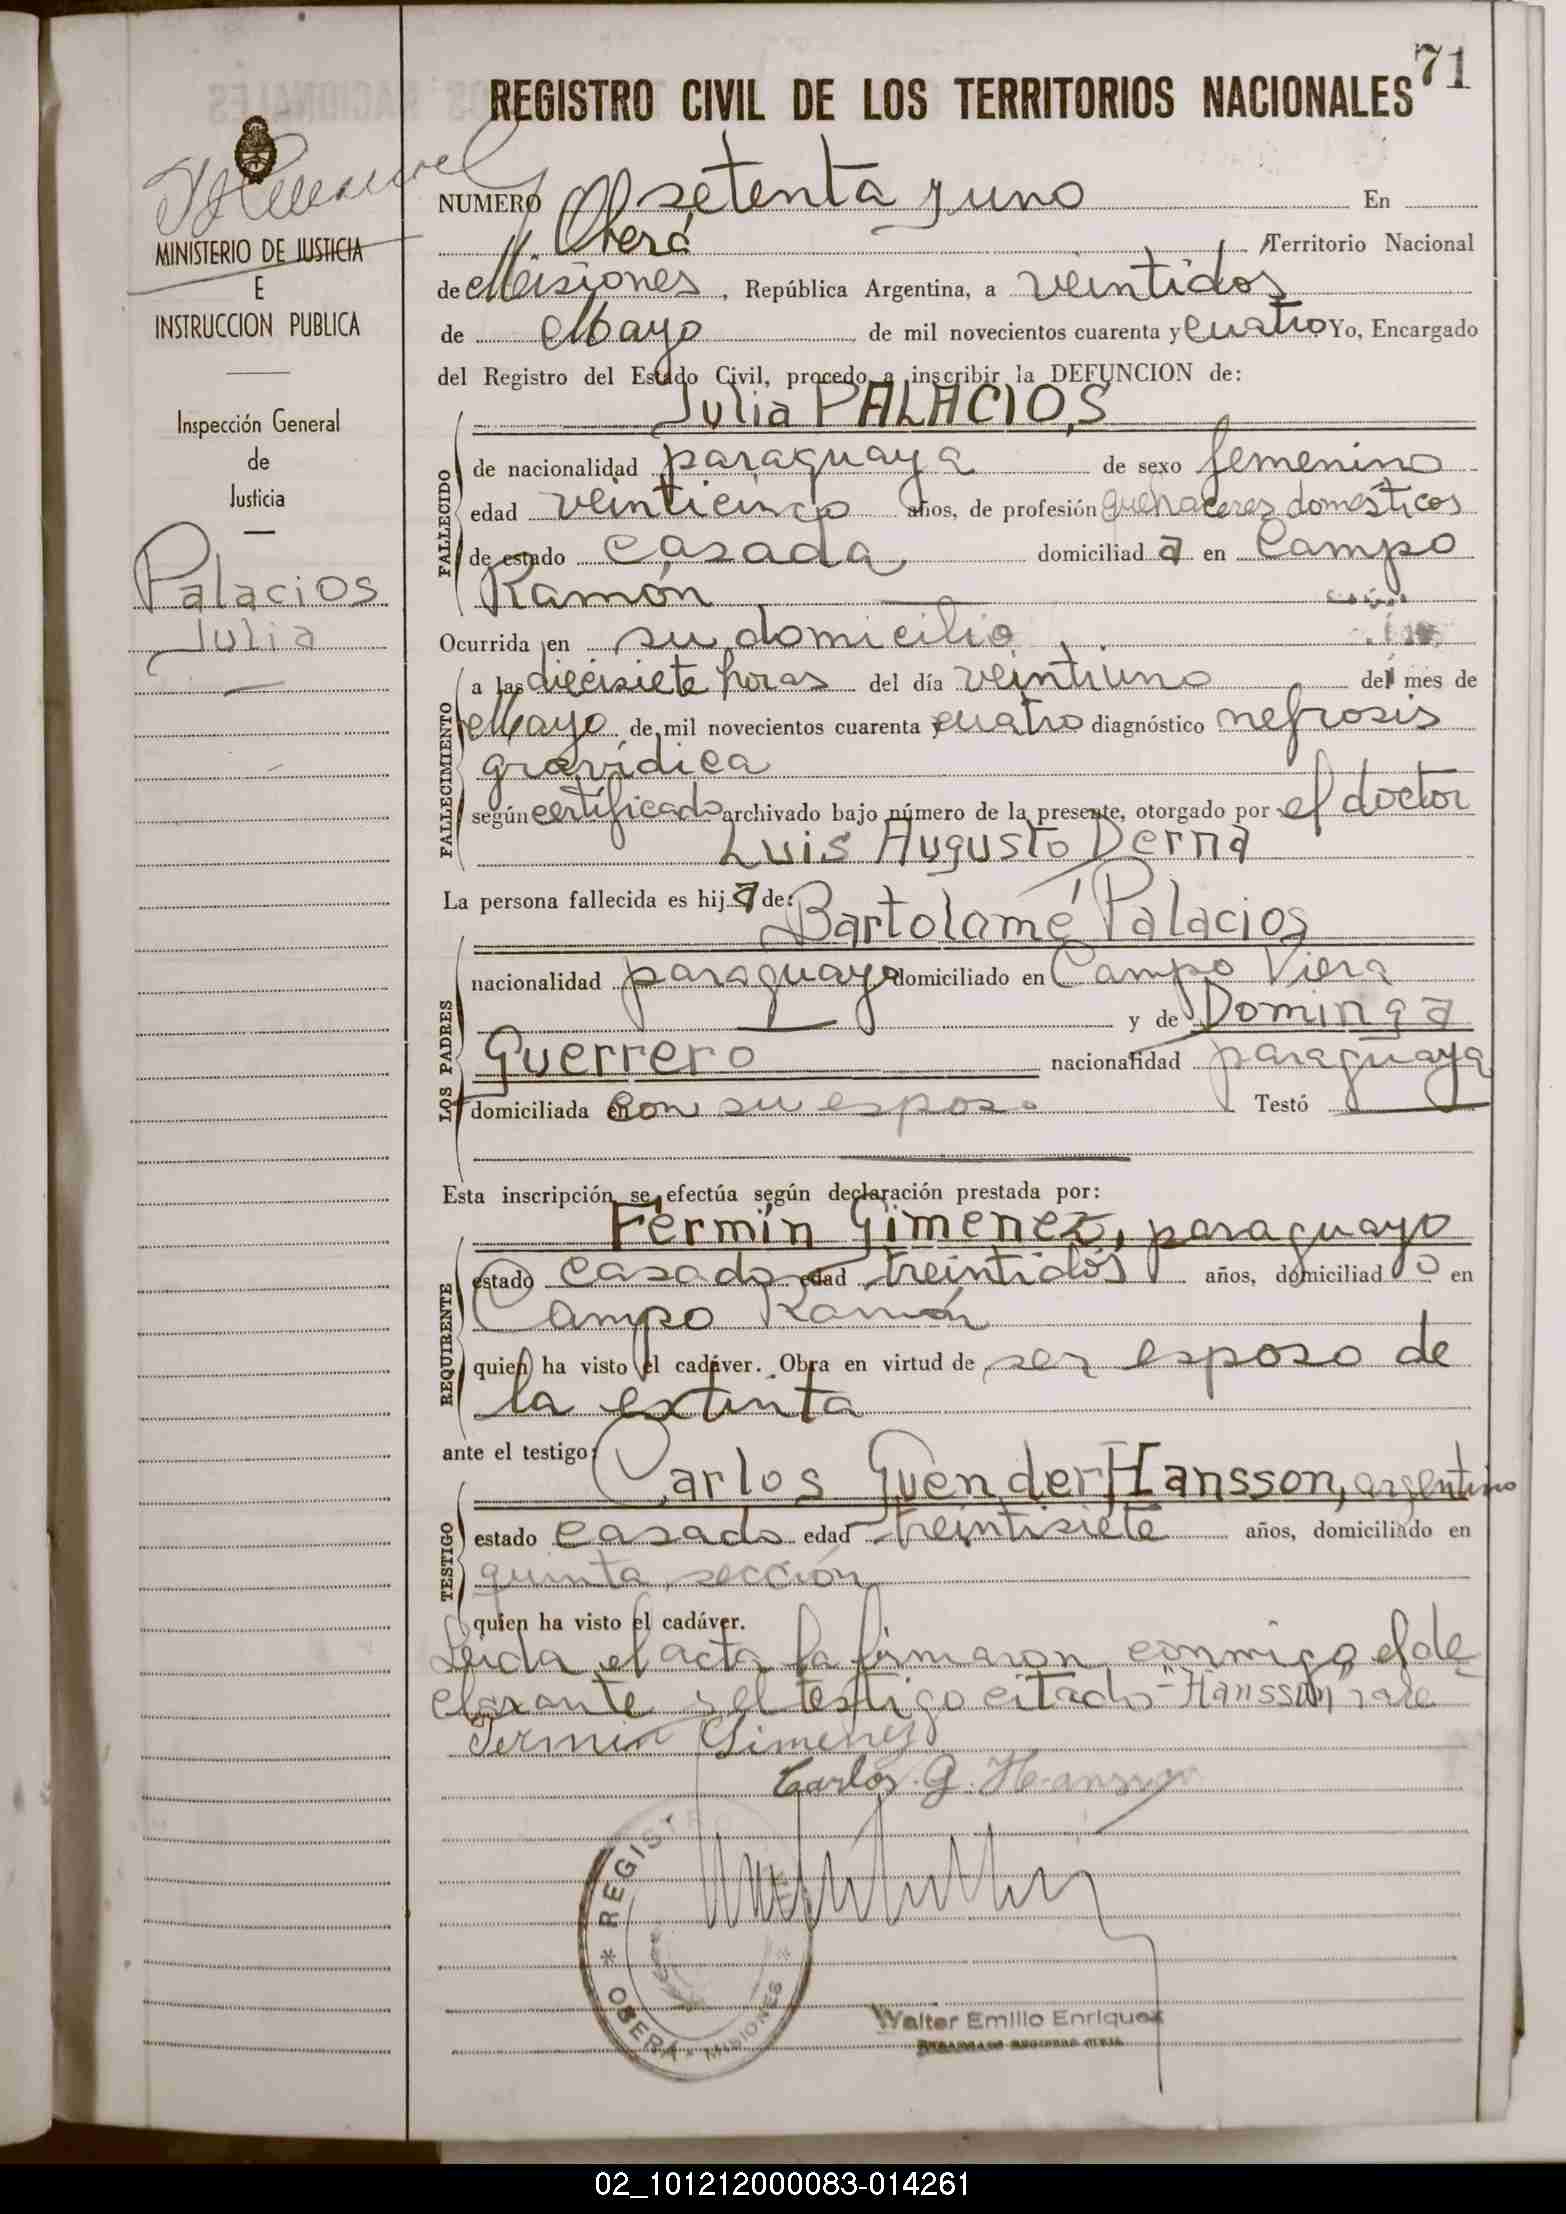 71
REGISTRO CIVIL DE LOS TERRITORIOS NACIONALES
NUMERO setenta y uno En
Oberá Territorio Nacional
de Misiones, República Argentina, a veintidos
de Mayo de mil novecientos cuarenta y cuatro Yo, Encargado
del Registro del Estado Civil, procedo a inscribir la DEFUNCION de:
Julia PALACIOS
FALLECIDO
de nacionalidad paraguaya de sexo femenino
edad veinticinco años, de profesión quehaceres domésticos
de estado casada domiciliada en Campo
Ramón
Ocurrida en su domicilio
FALLECIMIENTO
a las diecisiete horas del día veintiuno del mes de
Mayo de mil novecientos cuarenta y cuatro diagnóstico nefrosis
gravídica
según certificado archivado bajo número de la presente, otorgado por el doctor
Luis Augusto Derna
La persona fallecida es hija de:
Bartolomé Palacios
LOS PADRES
nacionalidad paraguayo domiciliado en Campo Viera
y de Dominga
Guerrero nacionalidad paraguaya
domiciliada en con su esposo Testó
Esta inscripción se efectúa según declaración prestada por:
Fermín Gimenez, paraguayo
REQUIRENTE
estado casado edad treintidós años, domiciliado en
Campo Ramón
quien ha visto el cadáver. Obra en virtud de ser esposo de
la extinta
ante el testigo:
Carlos Guender Hansson, argentino
TESTIGO
estado casado edad treintisiete años, domiciliado en
quinta sección
quien ha visto el cadáver.
Leida el acta la firmaron conmigo el de
clarante y el testigo citado-"Hansson" vale
Fermin Gimenez
Carlos. G. Hansson
REGISTR
* OBERÁ - MISIONES *
Walter Emilio Enriquez
ENCARGADO REGISTRO CIVIL
MINISTERIO DE JUSTICIA
E
INSTRUCCION PUBLICA
Inspección General
de
Justicia
Palacios
Julia
02_101212000083-014261